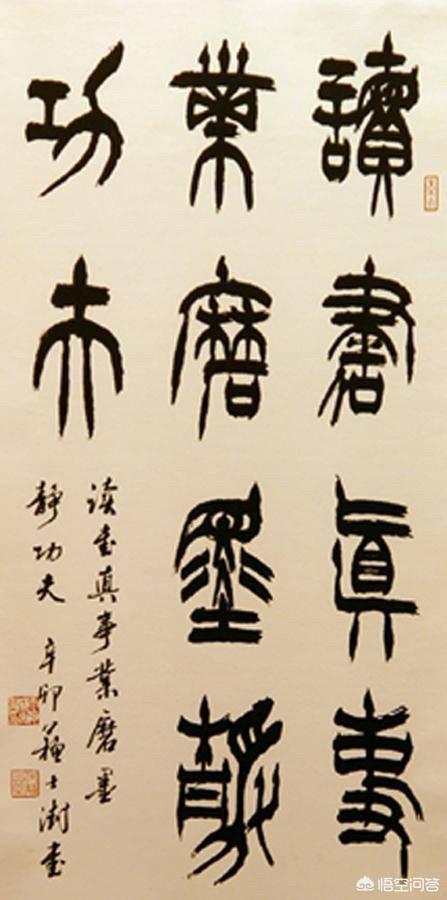 讀書眞事
業磨墨靜
功夫
读书真事業磨墨
静功夫 辛卯蘇士澍书
悟空问答